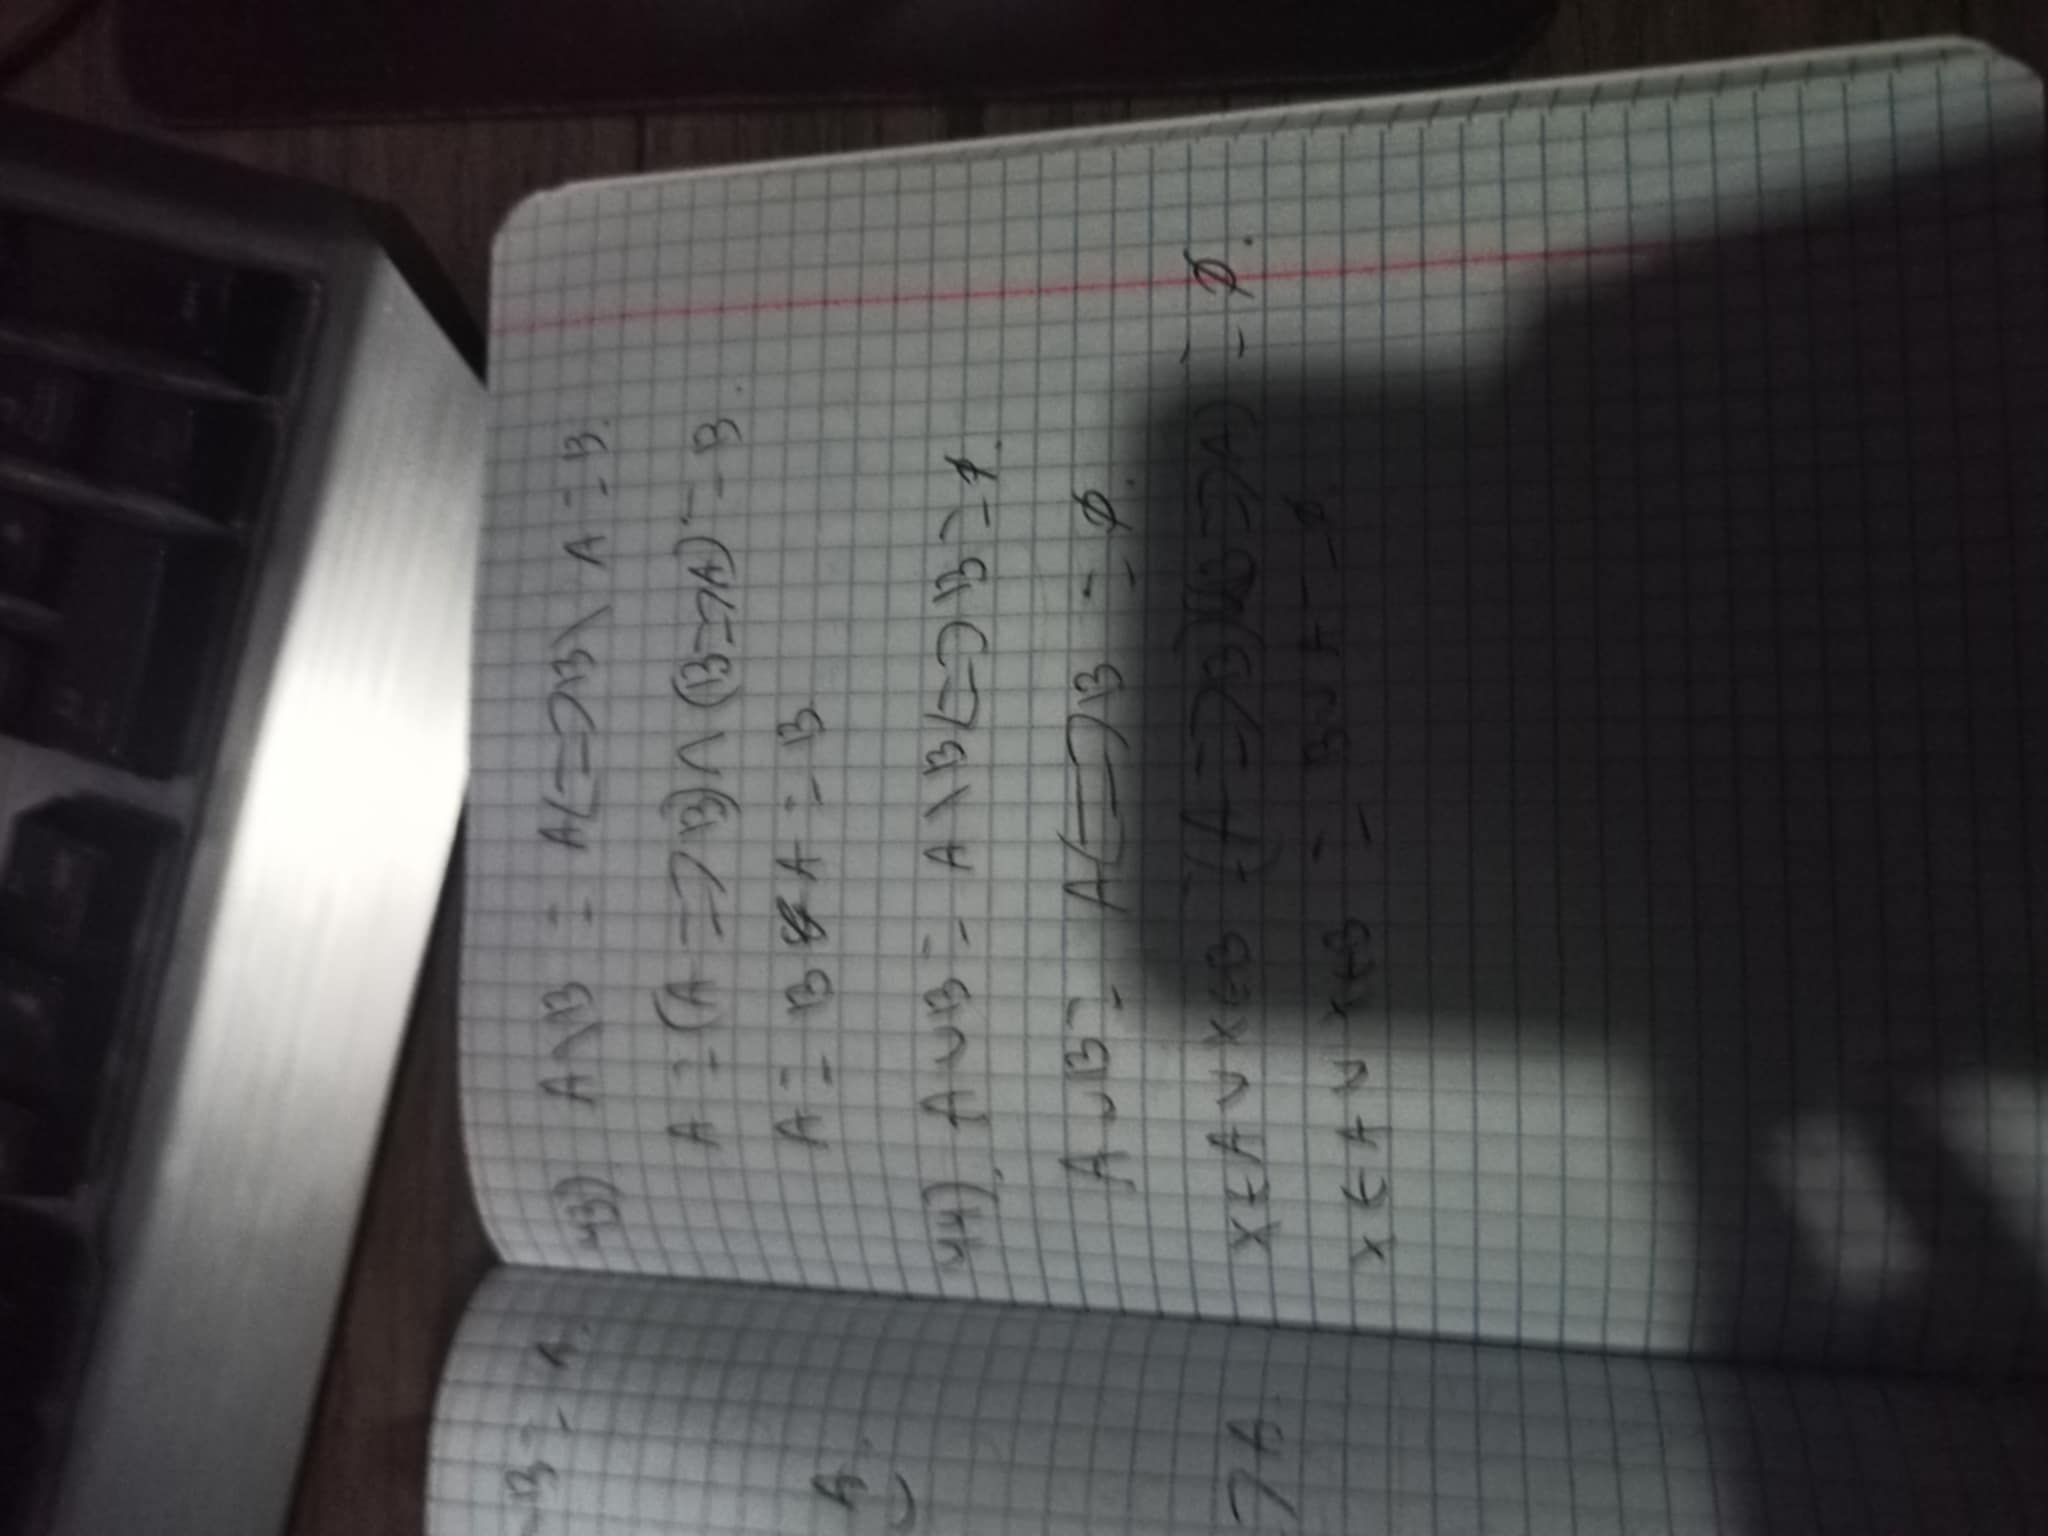 43) A\B = A<=>B\A = B.
A = (A => B) ∧ (B => A) = B.
A = B A = B
44) A∪B = A\B<=>B = ∅.
A∪B = A<=>B = ∅.
x∈A∨x∈B (A=>B)(B=>A) = ∅.
x∈A∨x∈B = B∪A = ∅
B = A.
A.
=>A.